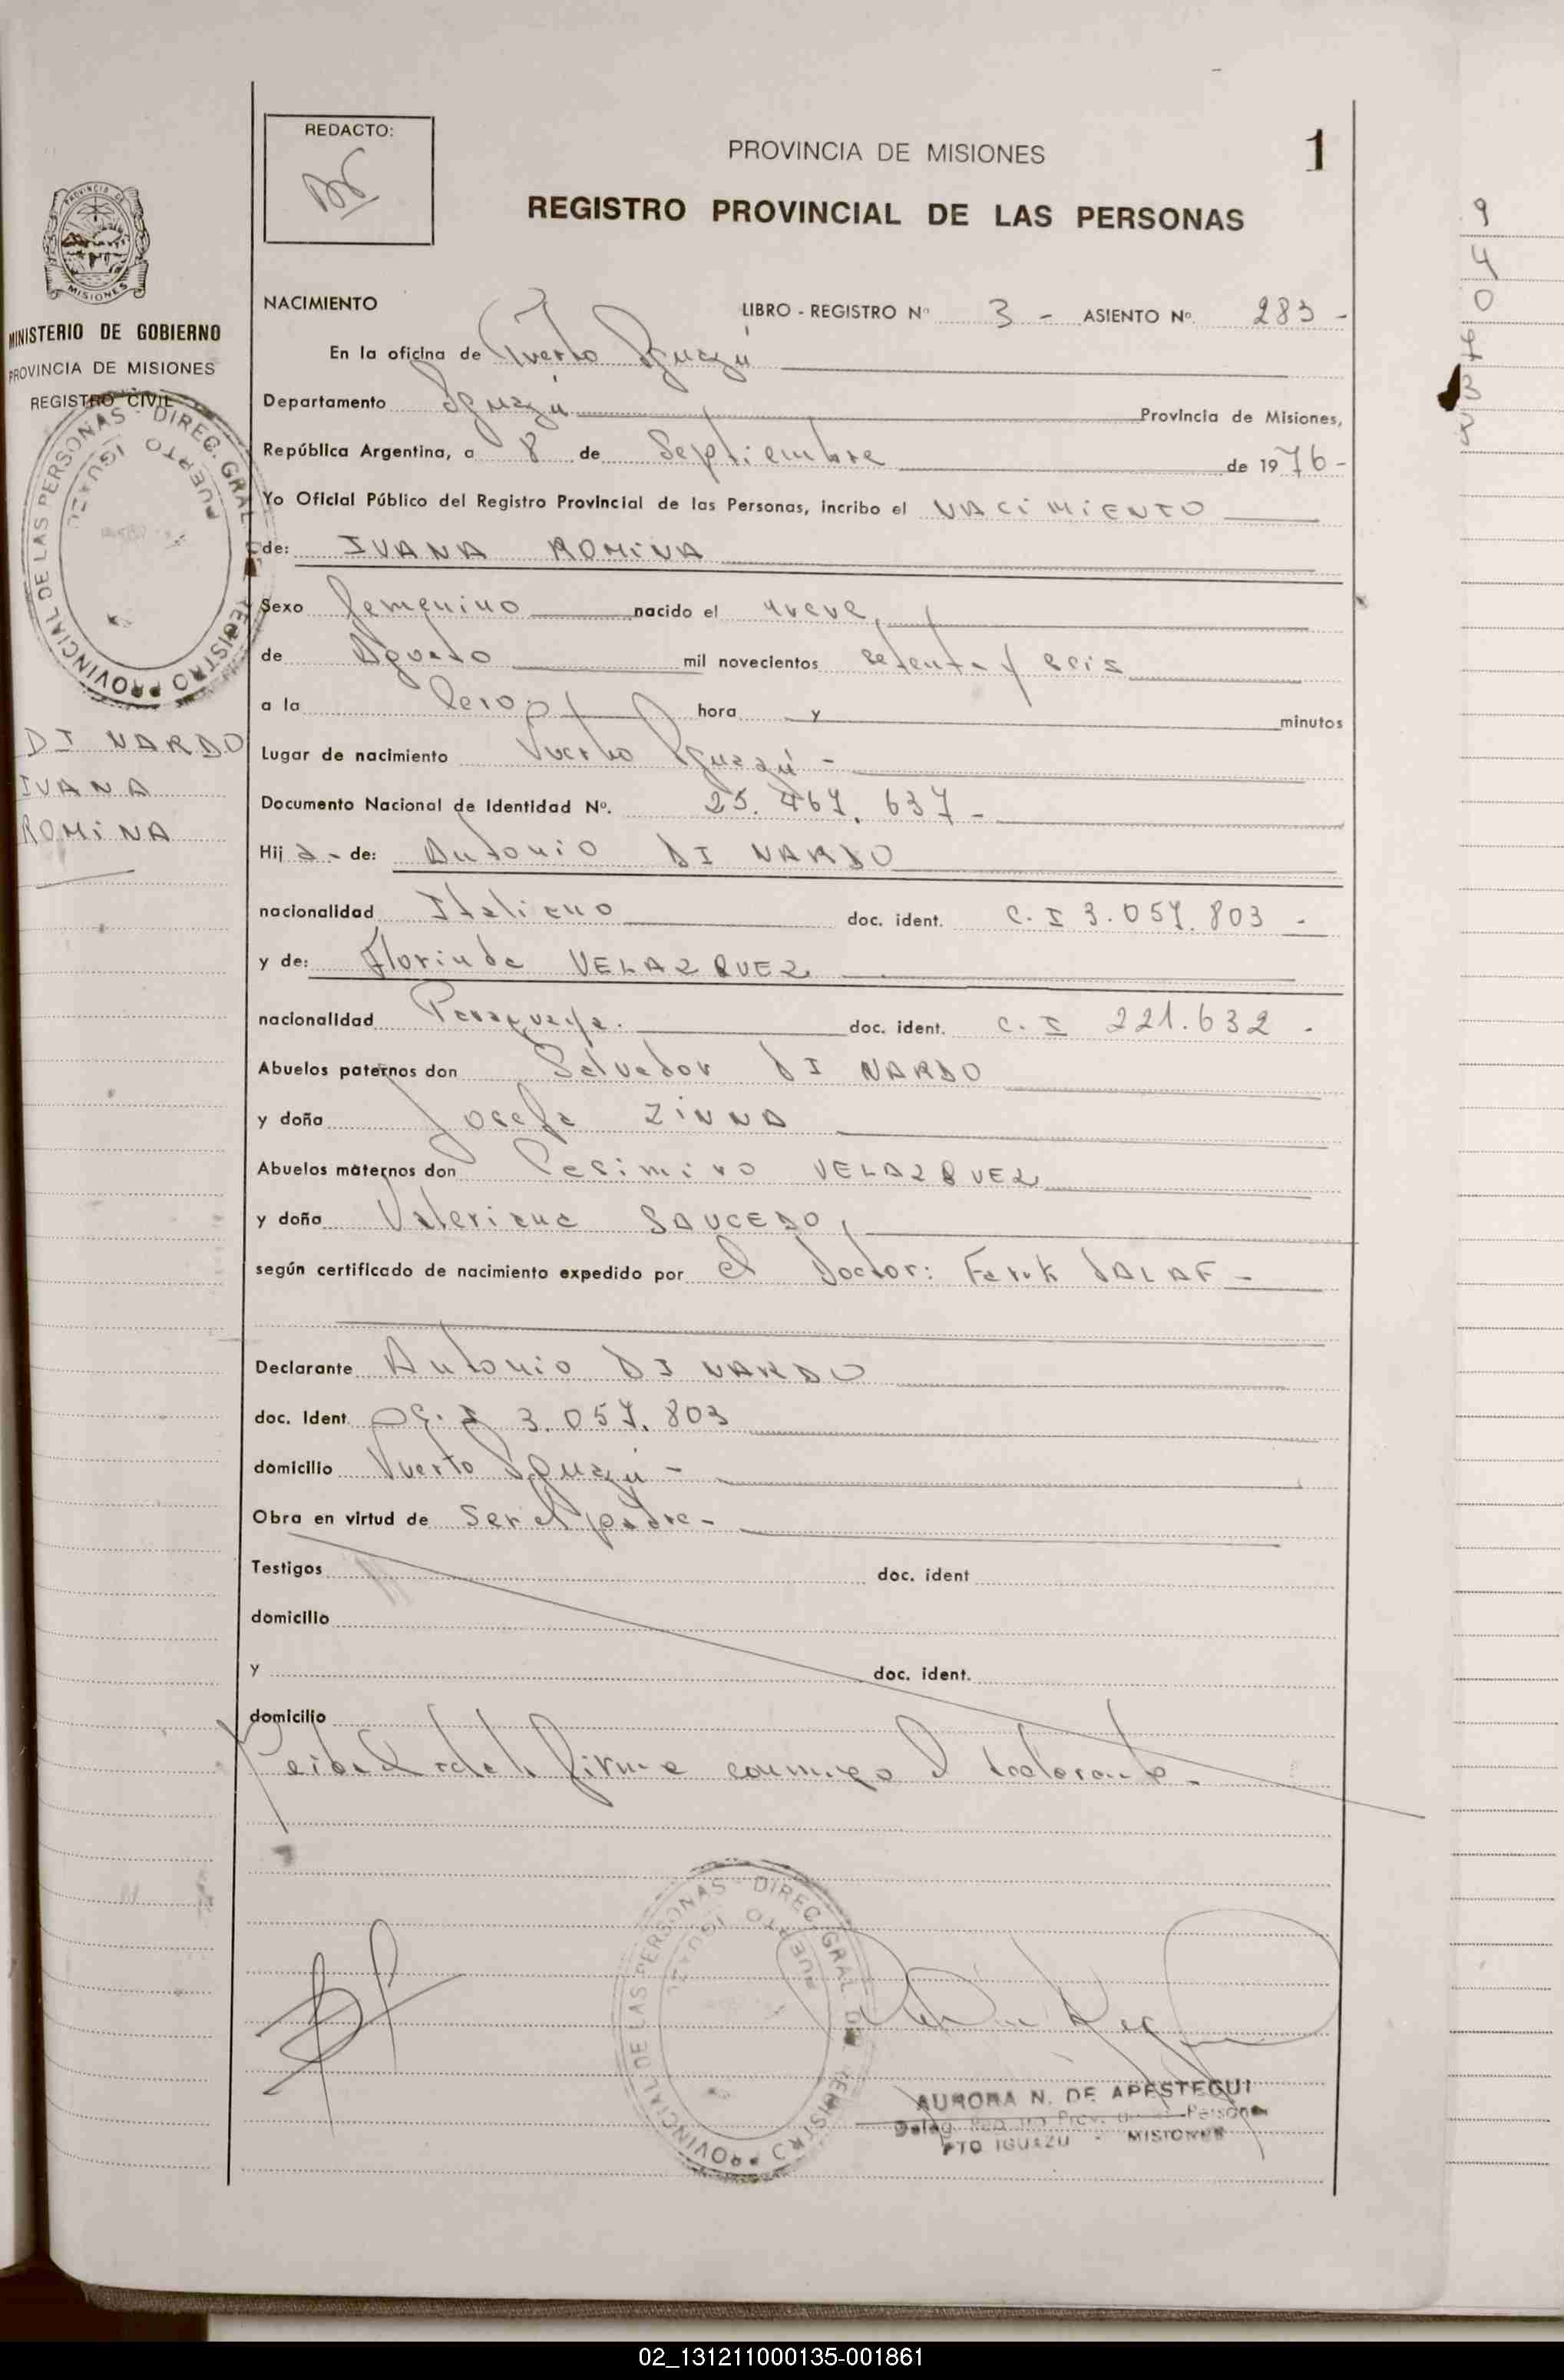 REDACTO:
PROVINCIA DE MISIONES
1
REGISTRO PROVINCIAL DE LAS PERSONAS
MISIONES
MINISTERIO DE GOBIERNO
PROVINCIA DE MISIONES
REGISTRO CIVIL
DIREC. GRAL. DEL REGISTRO PROVINCIAL DE LAS PERSONAS
PUERTO IGUAZU
NACIMIENTO LIBRO - REGISTRO Nº 3 - ASIENTO Nº 283 -
En la oficina de Puerto Iguazú
Departamento Iguazú Provincia de Misiones,
República Argentina, a 8 de Septiembre de 1976 -
Yo Oficial Público del Registro Provincial de las Personas, incribo el NACIMIENTO
de: IVANA ROMINA
Sexo femenino nacido el nueve,
de Agosto mil novecientos setenta y seis
a la cero hora y minutos
DI NARDO
IVANA
ROMINA
Lugar de nacimiento Puerto Iguazú -
Documento Nacional de Identidad Nº. 25.467.637 -
Hij a - de: Antonio DI NARDO
nacionalidad Italiano doc. ident. C. I 3.057.803 -
y de: Florinda VELAZQUEZ
nacionalidad Paraguaya. doc. ident. C. I 221.632 -
Abuelos paternos don Salvador DI NARDO
y doña Josefa ZINNA
Abuelos maternos don Casimiro VELAZQUEZ
y doña Valeriana SAUCEDO,
según certificado de nacimiento expedido por el Doctor: Faruk
Declarante Antonio DI NARDO
doc. Ident C. I 3.057.803
domicilio Puerto Iguazú -
Obra en virtud de ser el padre -
Testigos doc. ident
domicilio
y doc. ident.
domicilio
firma conmigo el declarante -
DIREC. GRAL. DEL REGISTRO PROVINCIAL DE LAS PERSONAS
PUERTO IGUAZU
AURORA N. DE APESTEGUI
PTO IGUAZU - MISIONES
02_131211000135-001861